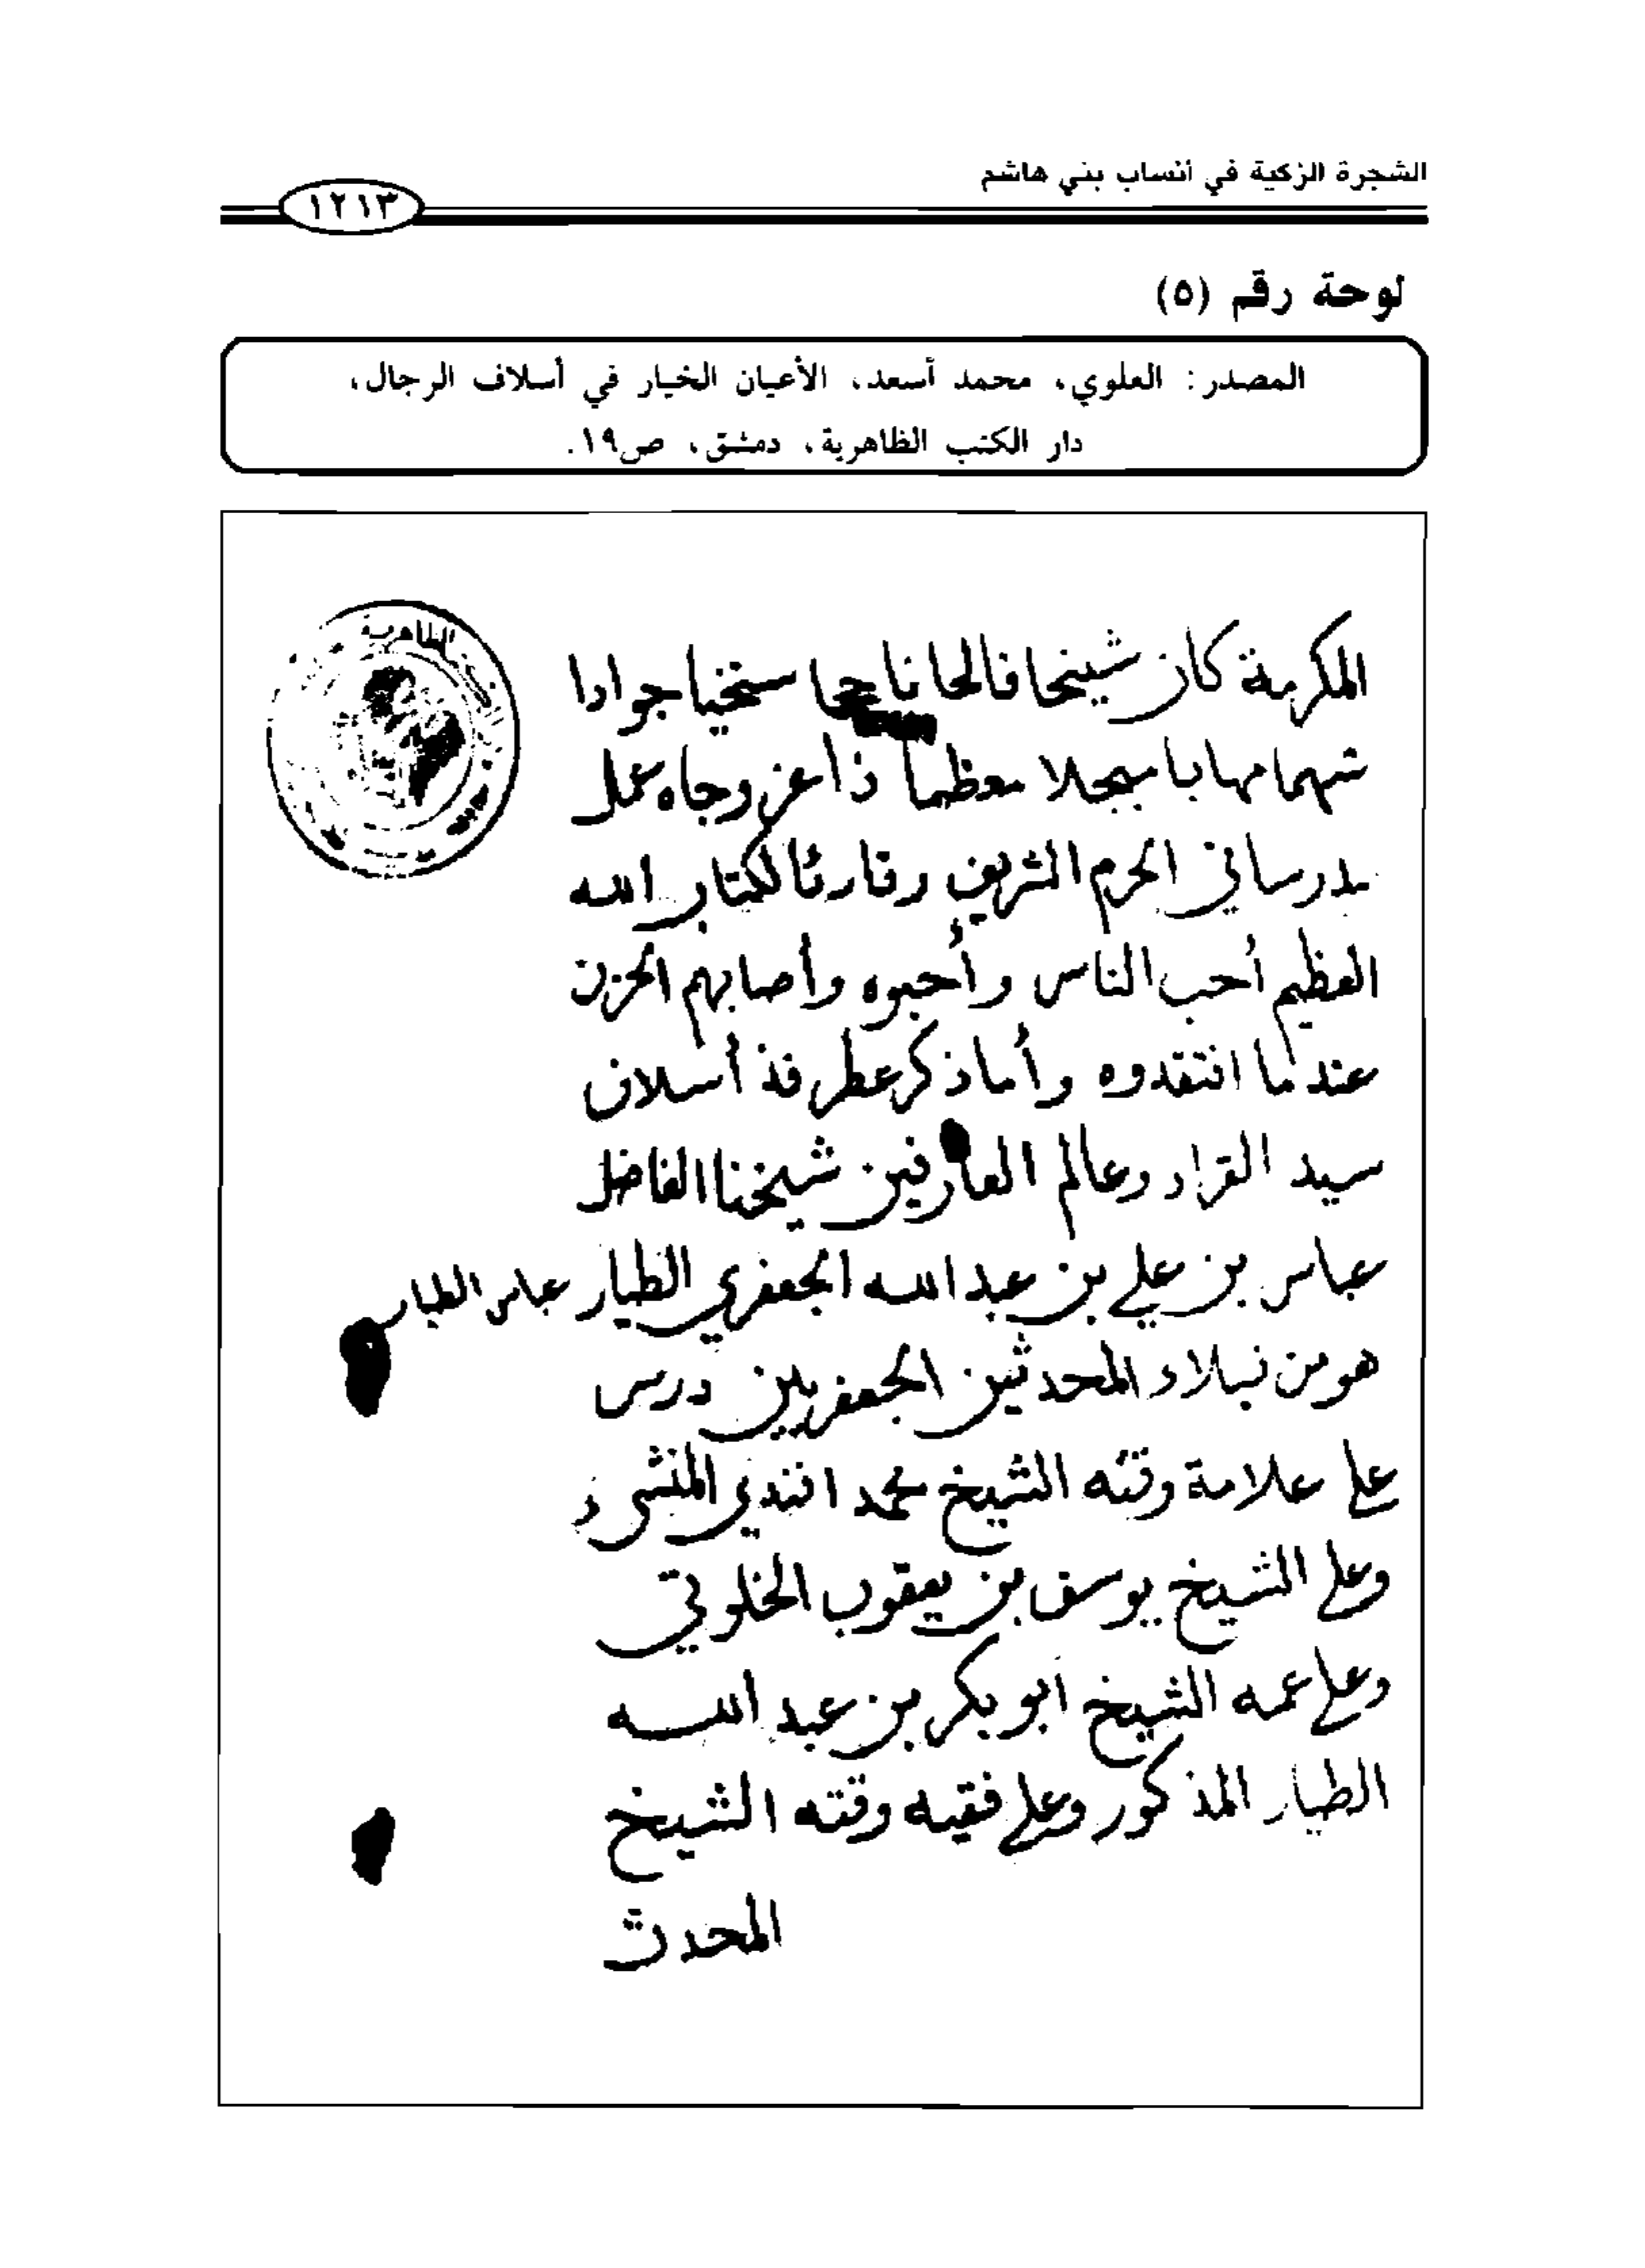 الشجرة الزكية في أنساب بني هاشم
١٢١٣
لوحة رقم (٥)
المصدر: العلوي، محمد أسعد، الأعيان الخيار في أسلاف الرجال،
دار الكتب الظاهرية، دمشق، ص١٩.
الظاهرية
المكرمة كان شيخا فالحا ناجحا سخيا جوادا
شهما مهابا مبجلا معظما ذا عز وجاه عمل
مدرسا في الحرم الشريف وقارئا لكتاب الله
العظيم أحب الناس وأحبوه وأصابهم الحزن
عندما افتقدوه وأما ذكر عطر فذ أسلاف
سيد القراء وعالم العارفين شيخنا الفاضل
عباس بن علي بن عبد الله الجعفري الطيار عباس الطيار
هو من نبلاء المحدثين الجعفريين درس
على علامة وقته الشيخ محمد افندي المنشي
وعلى الشيخ يوسف بن يعقوب الخلوتي
وعلى عمه الشيخ أبو بكر بن عبد الله
الطيار المذكور وعلى فقيه وقته الشيخ
المحدث